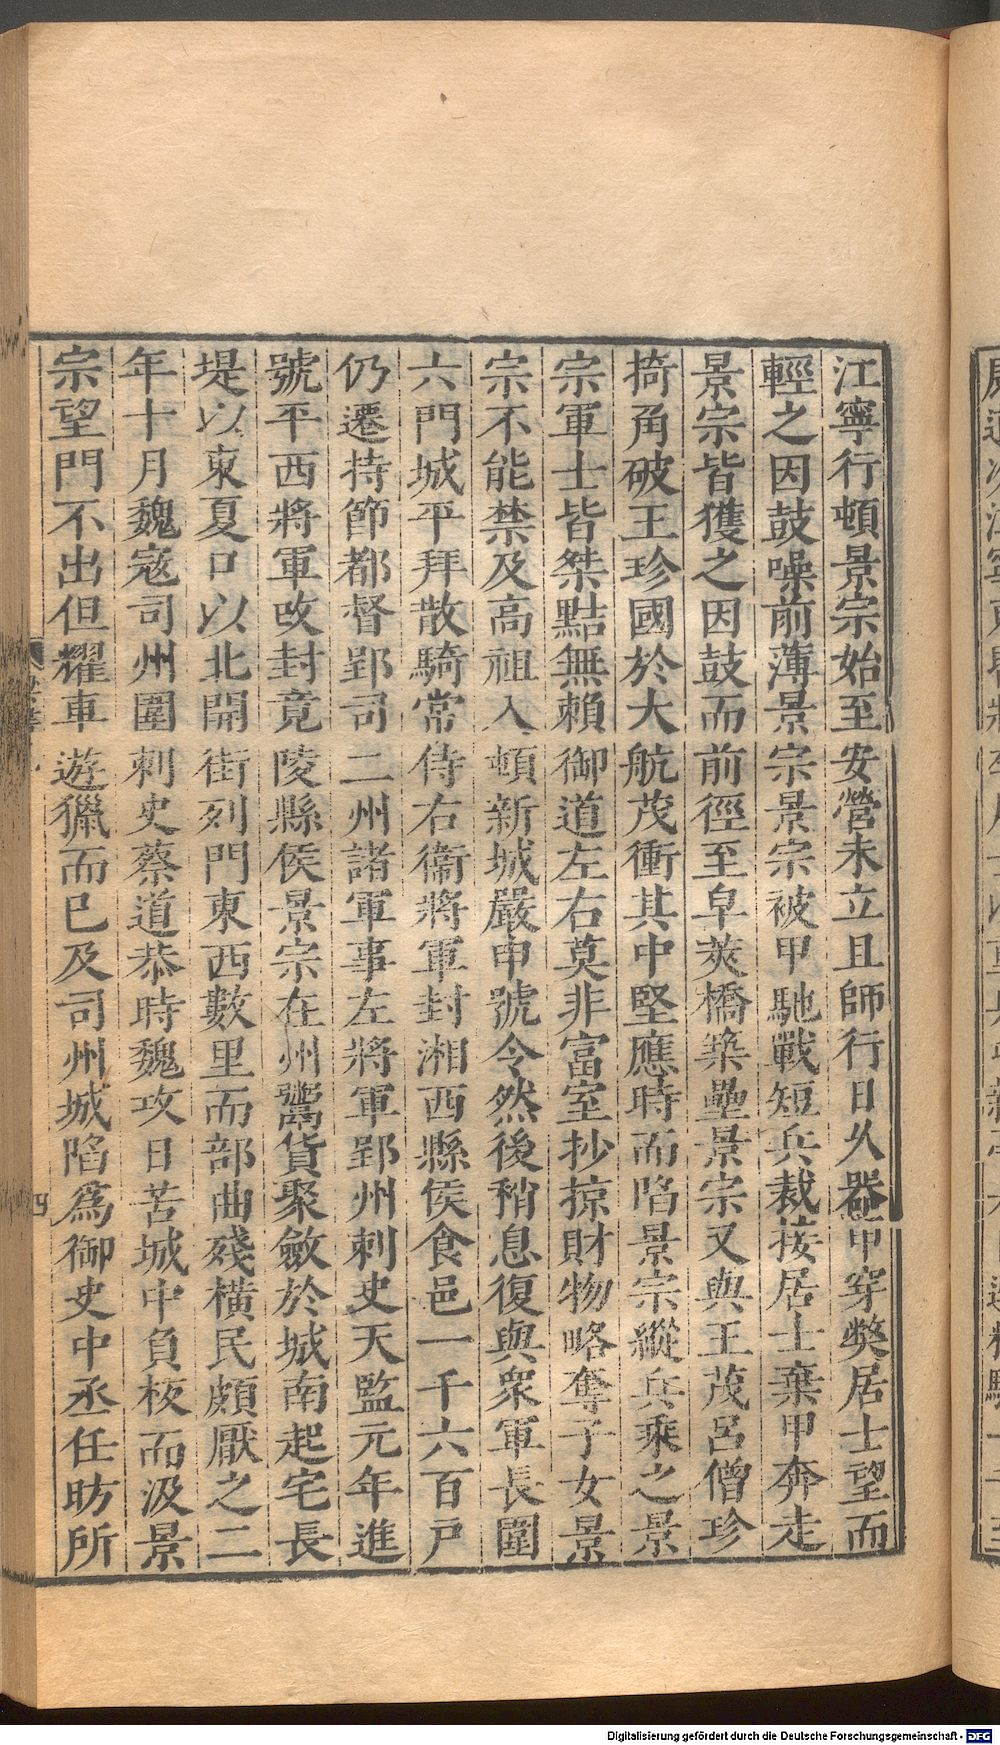 江寧行頓景宗始至安營未立且師行日久器甲穿獘居士望而
輕之因鼓噪前薄景宗景宗被甲馳戰短兵裁接居士棄甲奔走
景宗皆獲之因鼓而前徑至皁莢橋築壘景宗又與王茂呂僧珍
掎角破王珍國於大航茂衝其中堅應時而陷景宗縱兵乘之景
宗軍士皆桀黠無賴御道左右莫非富室抄掠財物略奪子女景
宗不能禁及高祖入頓新城嚴申號令然後稍息復與衆軍長圍
六門城平拜散騎常侍右衞將軍封湘西縣侯食邑一千六百戸
仍遷持節都督郢司二州諸軍事左將軍郢州刺史天監元年進
號平西將軍改封竟陵縣侯景宗在州鬻貨聚斂於城南起宅長
堤以東夏口以北開街列門東西數里而部曲殘橫民頗厭之二
年十月魏寇司州圍刺史蔡道恭時魏攻日苦城中負板而汲景
宗望門不出但耀車遊獵而已及司州城陷爲御史中丞任昉所
四
Digitalisierung gefördert durch die Deutsche Forschungsgemeinschaft - DFG